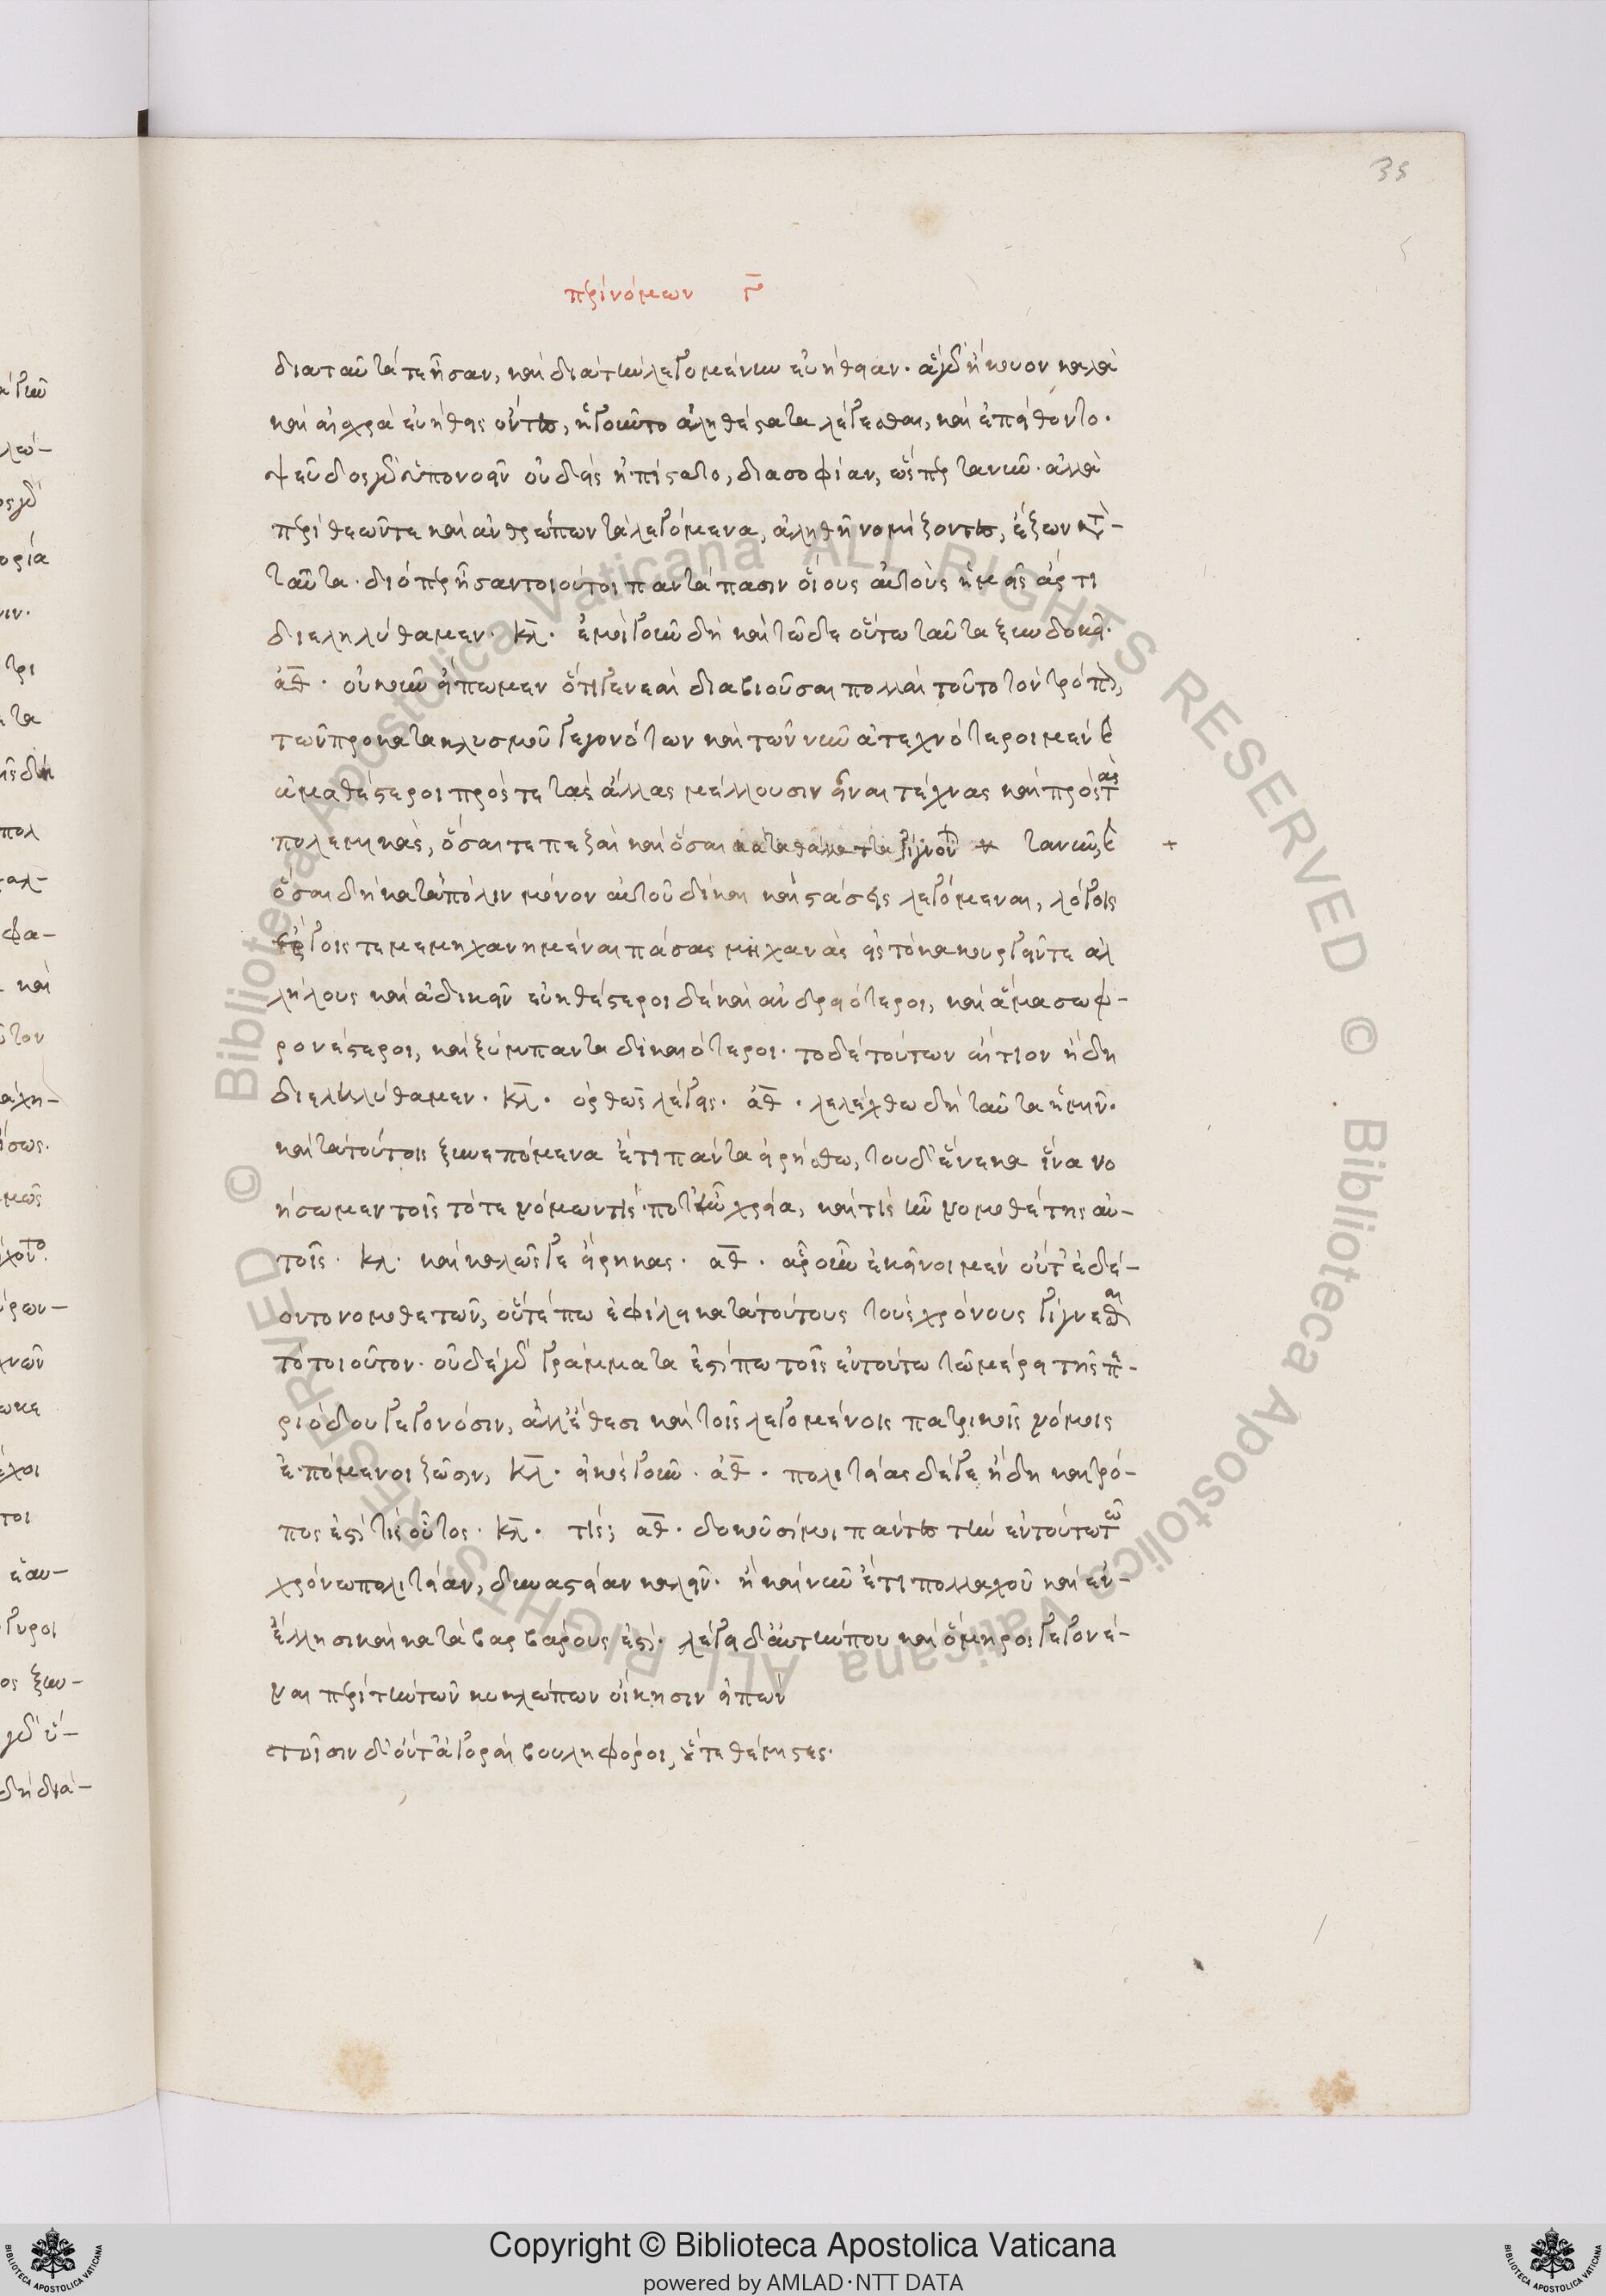 35
περὶ νόμων γ̄
διὰ ταῦτά τε ἦσαν, καὶ διὰ τὴν λεγομένην εὐήθειαν. ἃ γὰρ ἤκουον καλὰ
καὶ αἰσχρὰ εὐήθεις ὄντες, ἡγοῦντο ἀληθέστατα λέγεσθαι, καὶ ἐπείθοντο.
ψεῦδος γὰρ ὑπονοεῖν οὐδεὶς ἠπίστατο, διὰ σοφίαν, ὥσπερ τανῦν. ἀλλὰ
περὶ θεῶν τε καὶ ἀνθρώπων τὰ λεγόμενα, ἀληθῆ νομίζοντες, ἔζων κατὰ
ταῦτα. διόπερ ἦσαν τοιοῦτοι παντάπασιν οἵους αὐτοὺς ἡμεῖς ἄρτι
διεληλύθαμεν. κλ. ἐμοὶ γοῦν δὴ καὶ τῷδε οὕτω ταῦτα ξυνδοκεῖ.
ἀθ. οὐκοῦν εἴπωμεν ὅτι γενεαὶ διαβιοῦσαι πολλαὶ τοῦτον τὸν τρόπον,
τῶν πρὸ κατακλυσμοῦ γεγονότων καὶ τῶν νῦν ἀτεχνότεροι μὲν καὶ
ἀμαθέστεροι πρός τε τὰς ἄλλας μέλλουσιν εἶναι τέχνας καὶ πρὸς τὰς
πολεμικὰς, ὅσαι τε πεζαὶ καὶ ὅσαι κατὰ θάλατταν γίγνονται τανῦν, καὶ
ὅσαι δὴ κατὰ πόλιν μόνον αὐτοῦ δίκαι καὶ στάσεις λεγόμεναι, λόγοις
ἔργοις τε μεμηχανημέναι πάσας μηχανὰς εἰς τὸ κακουργεῖν τε ἀλ
λήλους καὶ ἀδικεῖν εὐηθέστεροι δὲ καὶ ἀνδρειότεροι, καὶ ἅμα σωφ-
ρονέστεροι, καὶ ξύμπαντα δικαιότεροι. τὸ δὲ τούτων αἴτιον ἤδη
διεληλύθαμεν. κλ. ὀρθῶς λέγεις. ἀθ. λελέχθω δὴ ταῦτα ἡμῖν.
καὶ τὰ τούτοις ξυνεπόμενα ἔτι πάντα εἰρήσθω, τοῦδ' ἕνεκα ἵνα νο
ήσωμεν τοῖς τότε νόμων τίς ποτ' ἦν χρεία, καὶ τίς ἦν νομοθέτης αὐ-
τοῖς. κλ. καὶ καλῶς γε εἴρηκας. ἀθ. ἆρ' οὖν ἐκεῖνοι μὲν οὔτ' ἐδέ-
οντο νομοθετῶν, οὔτέ πω ἐφίλει κατὰ τούτους τοὺς χρόνους γίγνεσθαι
τὸ τοιοῦτον. οὐδὲ γὰρ γράμματα ἔστι πω τοῖς ἐν τούτω τῷ μέρει τῆς πε-
ριόδου γεγονόσιν, ἀλλ' ἔθεσι καὶ τοῖς λεγομένοις πατρικοῖς νόμοις
ἑπόμενοι ζῶσιν, κλ. εἰκὸς γοῦν. ἀθ. πολιτείας δέ γε ἤδη καὶ τρό-
πος ἐστί τις οὗτος. κλ. τίς; ἀθ. δοκοῦσί μοι πάντες τὴν ἐν τούτω τῷ
χρόνω πολιτείαν, δυναστείαν καλεῖν. ἣ καὶ νῦν ἔτι πολλαχοῦ καὶ ἐν-
ἕλλησι καὶ κατὰ βαρβάρους ἐστί. λέγει δ' αὐτήν που καὶ ὅμηρος γεγονέ-
ναι περὶ τὴν τῶν κυκλώπων οἴκησιν εἰπών
τοῖσιν δ' οὔτ' ἀγοραὶ βουληφόροι, οὔτε θέμιστες.